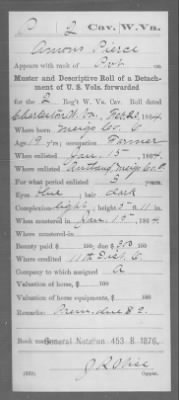 P 2 Cav. W. Va.
Amons Pierce
Appears with rank of Pvt.
Muster and Descriptive Roll of a Detachment
of U. S. Vols. forwarded
for the 2 Reg't W. Va. Cav. Roll dated
Charleston W. Va. 1864.
Where born Meigs Co. O
Age 19 y'rs; occupation Farmer
When enlisted Jan. 15, 1864.
Where enlisted Meigs Co. O
For what period enlisted 3 years.
Eyes blue; hair dark
Complexion light; height 5 ft. 11 in.
When mustered in Jan. 15, 1864.
Where mustered in
Bounty paid $ 100; due $ 100
Where credited 11th Dist. O
Company to which assigned A
Valuation of horse, $ 100
Valuation of horse equipments, $ 100
Remarks: Prem. due $2.
Book mark: General Notation 453 B 1876,
Copyist.